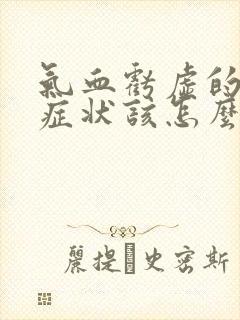 氣血虧虛的
症状該怎麼
麗提·史密斯